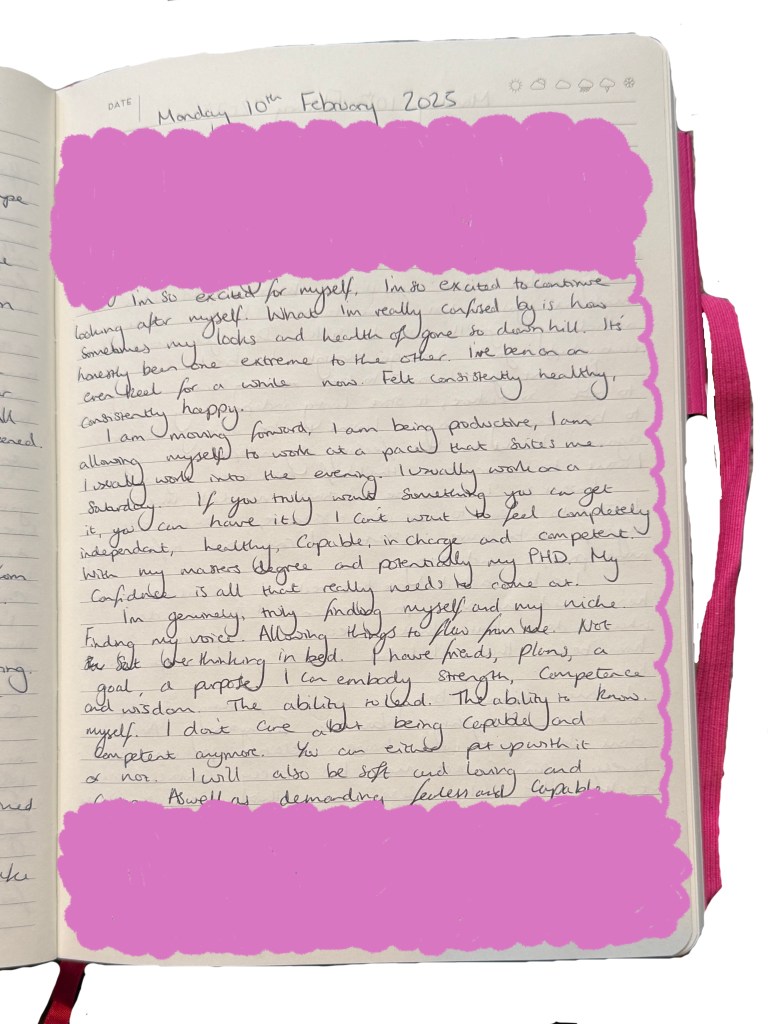 DATE
Monday 10th February 2025
I'm so excited for myself. I'm so excited to continue
looking after myself. What I'm really confused by is how
sometimes my looks and health of gone so downhill. It's
honestly been one extreme to the other. I've been on an
even keel for a while now. Felt consistently healthy,
consistently happy.
I am moving forward, I am being productive, I am
allowing myself to work at a pace that suites me.
I usually work into the evening. I usually work on a
Saturday. If you truly want something you can get
it, you can have it! I can't want to feel completely
independent, healthy, capable, in charge and competent.
With my masters degree and potentially my PHD. My
Confidence is all that really needs to come at.
I'm genuinely, truly finding myself and my niche.
Finding my voice. Allowing things to flow from me. Not
Sat overthinking in bed. I have friends, plans, a
goal, a purpose I can embody strength, Competence
and wisdom. The ability to lead. The ability to know
myself. I don't care about being capable and
Competent anymore. You can either put up with it
or not. I will also be soft and loving and
Aswell as demanding fearless and Capable
ype
n
ll
ened.
om
ng.
ned
ake